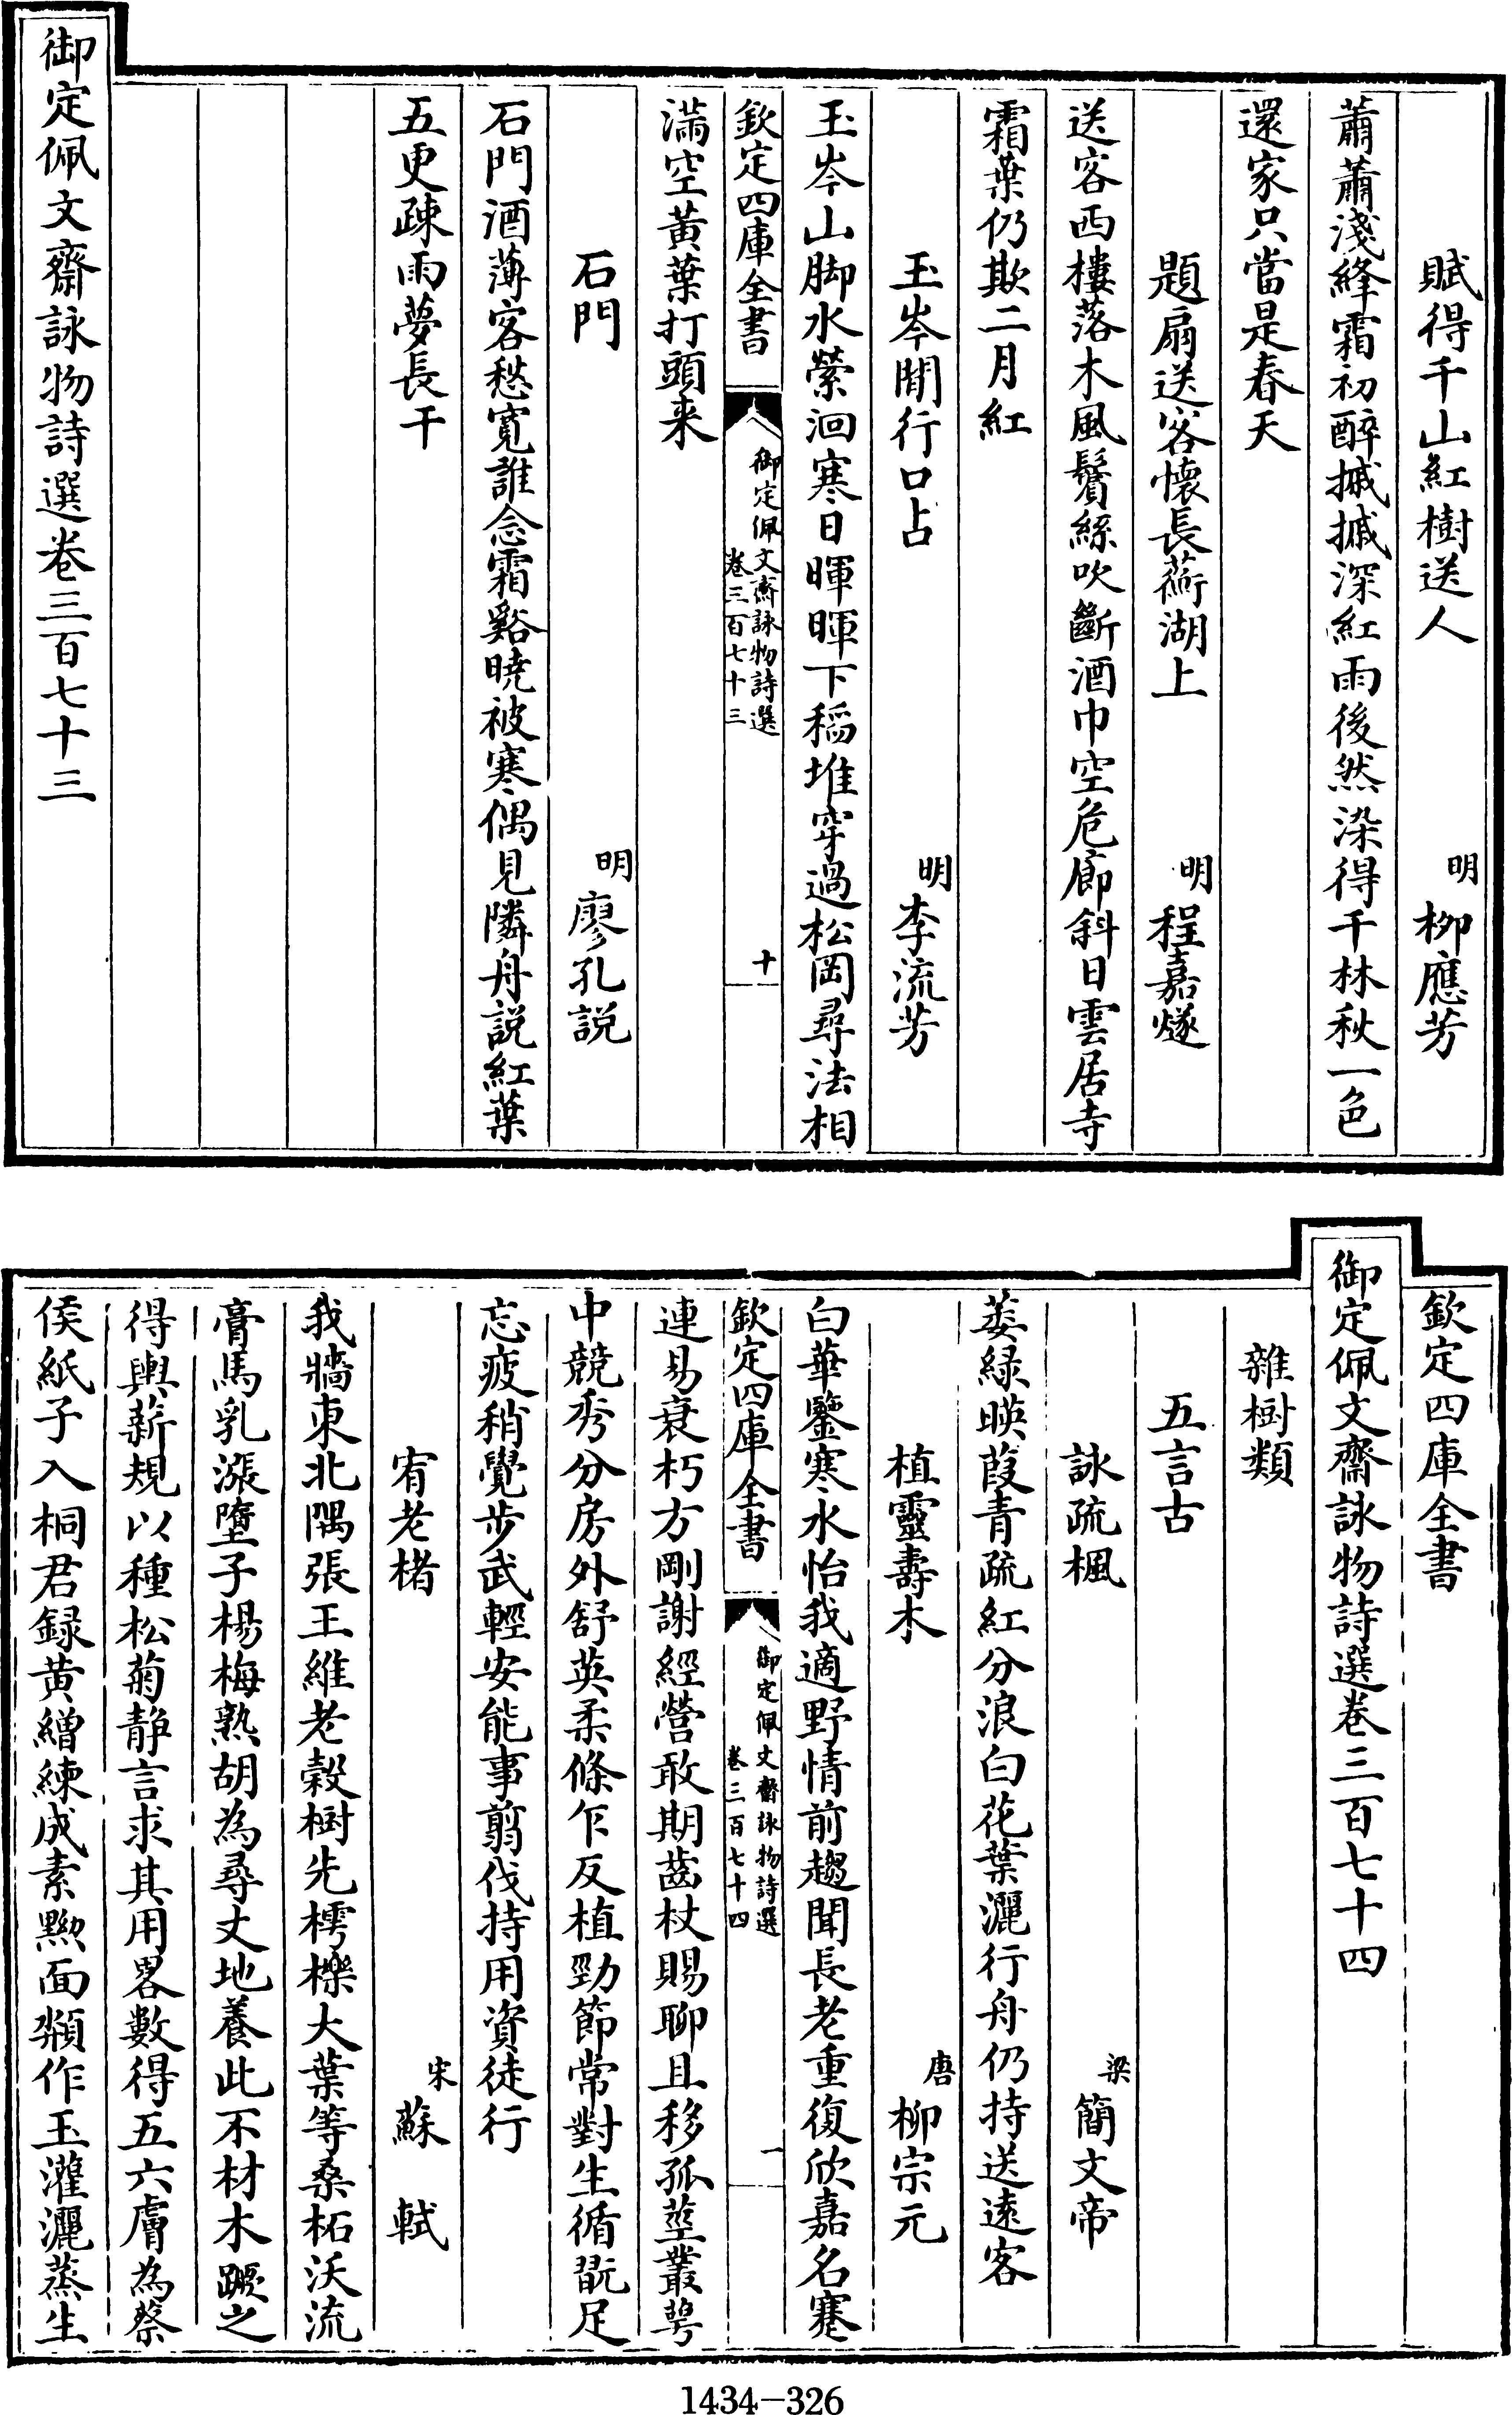 賦得千山紅樹送人
明柳應芳
蕭蕭淺絳霜初醉摵摵深紅雨後然染得千林秋一色
還家只當是春天
題扇送客懷長蘅湖上
明程嘉燧
送客西樓落木風鬢絲吹斷酒巾空危廊斜日雲居寺
霜葉仍欺二月紅
玉岑閒行口占
明李流芳
玉岑山脚水縈洄寒日暉暉下稻堆穿過松岡尋法相
欽定四庫全書
御定佩文齋詠物詩選
卷三百七十三
十
滿空黃葉打頭来
石門
明廖孔說
石門酒薄客愁寬誰念霜谿曉被寒偶見隣舟說紅葉
五更疎雨夢長干
御定佩文齋詠物詩選卷三百七十三
欽定四庫全書
御定佩文齋詠物詩選卷三百七十四
雜樹類
五言古
詠疏楓
梁簡文帝
萎綠暎葭青疏紅分浪白花葉灑行舟仍持送遠客
植靈壽木
唐柳宗元
白華鑒寒水怡我適野情前趨聞長老重復欣嘉名蹇
欽定四庫全書
御定佩文齋詠物詩選
卷三百七十四
一
連易衰朽方剛謝經營敢期齒杖賜聊且移孤莖叢萼
中競秀分房外舒英柔條乍反植勁節常對生循翫足
忘疲稍覺步武輕安能事翦伐持用資徒行
宥老楮
宋蘇軾
我牆東北隅張王維老榖樹先樗櫟大葉等桑柘沃流
膏馬乳漲墮子楊梅熟胡為尋丈地養此不材木蹶之
得輿薪規以種松菊静言求其用畧數得五六膚為蔡
侯紙子入桐君録黄繒練成素黝面頮作玉灌灑蒸生
1434-326